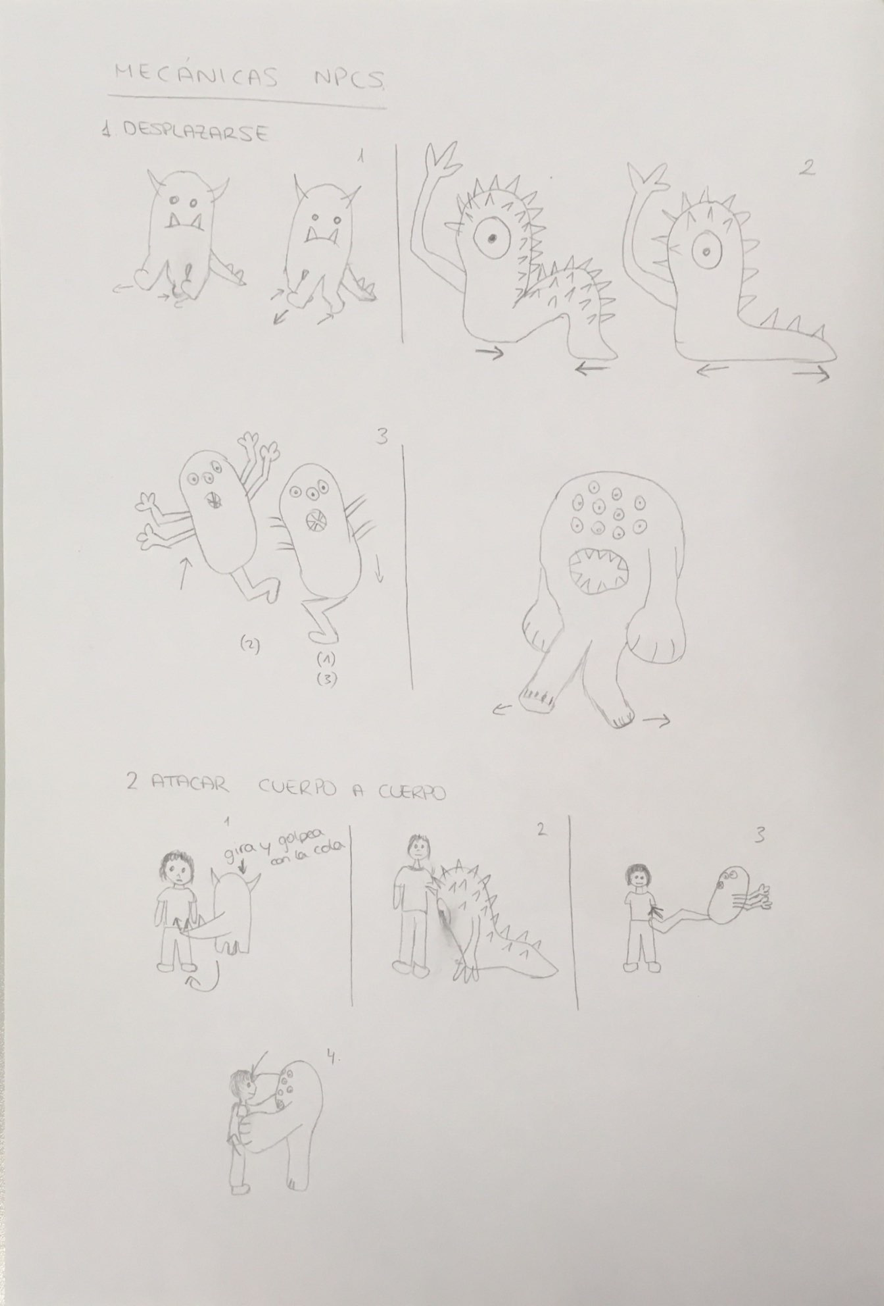 MECÁNICAS NPCS
1. DESPLAZARSE
1
2
3
(2)
(1)
(3)
2 ATACAR CUERPO A CUERPO
1
gira y golpea
con la cola
2
3
4.